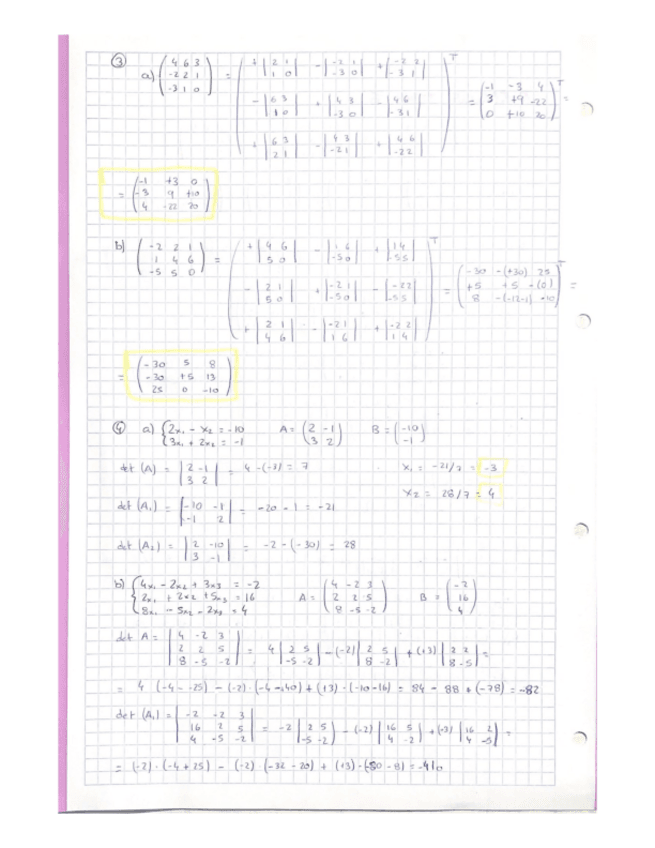 ③ a) (4 6 3 / -2 2 1 / -3 1 0) = (+|2 1 / 1 0| -|-2 1 / -3 0| +|-2 2 / -3 1| / -|6 3 / 1 0| +|4 3 / -3 0| -|4 6 / -3 1| / +|6 3 / 2 1| -|4 3 / -2 1| +|4 6 / -2 2|)ᵀ = (-1 -3 4 / 3 +9 -22 / 0 +10 20)ᵀ =
= (-1 +3 0 / -3 9 +10 / 4 -22 20)
b) (-2 2 1 / 1 4 6 / -5 5 0) = (+|4 6 / 5 0| -|1 6 / -5 0| +|1 4 / -5 5| / -|2 1 / 5 0| +|-2 1 / -5 0| -|-2 2 / -5 5| / +|2 1 / 4 6| -|-2 1 / 1 6| +|-2 2 / 1 4|)ᵀ = (-30 -(+30) 25 / +5 +5 -(0) / 8 -(-12-1) -10)ᵀ =
= (-30 5 8 / -30 +5 13 / 25 0 -10)
④ a) {2x₁ - x₂ = -10 / 3x₁ + 2x₂ = -1 A = (2 -1 / 3 2) B = (-10 / -1)
det (A) = |2 -1 / 3 2| = 4 -(-3) = 7 x₁ = -21/7 = -3
x₂ = 28/7 = 4
det (A₁) = |-10 -1 / -1 2| = -20 - 1 = -21
det (A₂) = |2 -10 / 3 -1| = -2 - (-30) = 28
b) {4x₁ - 2x₂ + 3x₃ = -2 / 2x₁ + 2x₂ + 5x₃ = 16 / 8x₁ - 5x₂ - 2x₃ = 4 A = (4 -2 3 / 2 2 5 / 8 -5 -2) B = (-2 / 16 / 4)
det A = |4 -2 3 / 2 2 5 / 8 -5 -2| = 4|2 5 / -5 -2| -(-2)|2 5 / 8 -2| +(+3)|2 2 / 8 -5| =
= 4 (-4 - -25) - (-2)·(-4 - 40) + (+3)·(-10-16) = 84 - 88 + (-78) = -82
det (A₁) = |-2 -2 3 / 16 2 5 / 4 -5 -2| = -2|2 5 / -5 -2| -(-2)|16 5 / 4 -2| +(+3)|16 2 / 4 -5| =
= (-2)·(-4 + 25) - (-2)·(-32 - 20) + (+3)·(-80 - 8) = -410